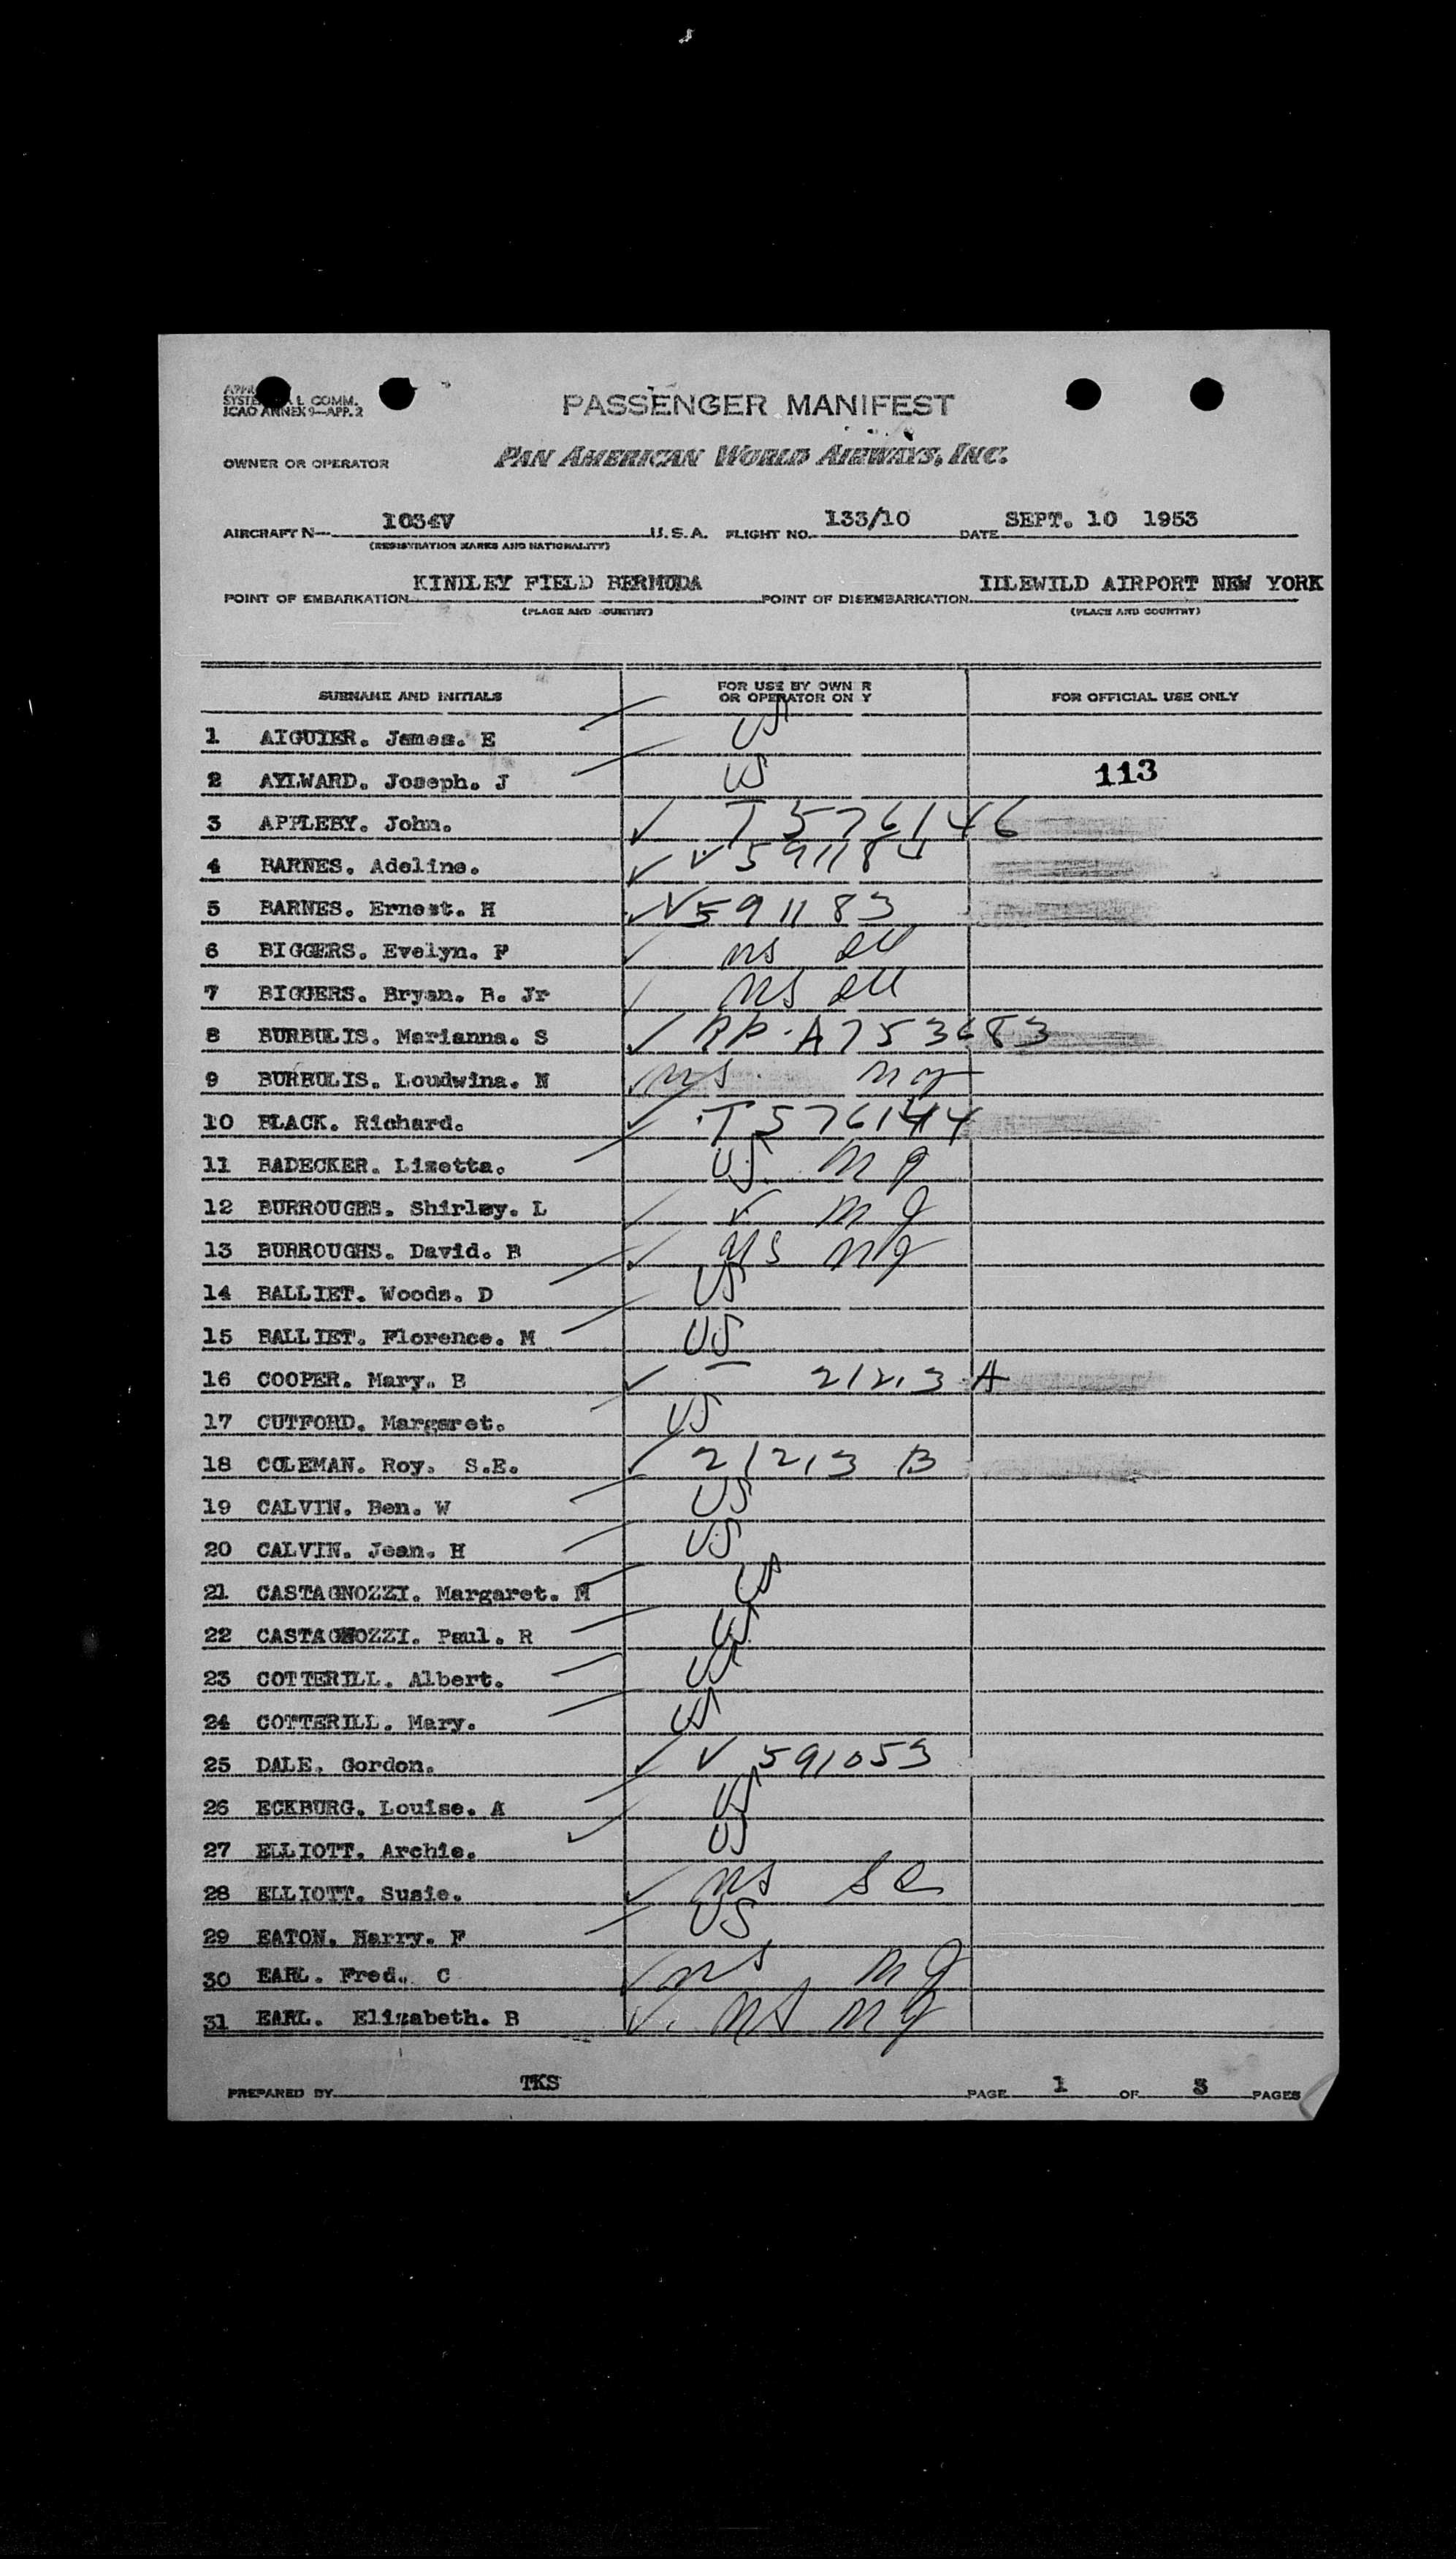 PASSENGER MANIFEST
L COMM.
ICAO ANNEX 9—APP. 2
OWNER OR OPERATOR PAN AMERICAN WORLD AIRWAYS, INC.
AIRCRAFT N— 1034V U.S.A. FLIGHT NO. 133/10 DATE SEPT. 10 1953
(REGISTRATION MARKS AND NATIONALITY)
POINT OF EMBARKATION KINDLEY FIELD BERMUDA POINT OF DISEMBARKATION IDLEWILD AIRPORT NEW YORK
(PLACE AND COUNTRY) (PLACE AND COUNTRY)
SURNAME AND INITIALS FOR USE BY OWNER OR OPERATOR ONLY FOR OFFICIAL USE ONLY
1 AIGUIER. James. E US
2 AYLWARD. Joseph. J US 113
3 APPLEBY. John. ✓ T 576146
4 BARNES. Adeline. ✓ V 591184
5 BARNES. Ernest. H ✓ V 591183
6 BIGGERS. Evelyn. F ✓ ns
7 BIGGERS. Bryan. B. Jr ns
8 BURBULIS. Marianna. S ✓ A7753683
9 BURBULIS. Loudwina. N ✓ ns
10 BLACK. Richard. ✓ T 576144
11 BADECKER. Lizetta. US
12 BURROUGHS. Shirley. L ✓
13 BURROUGHS. David. B ✓ ns
14 BALLIET. Woods. D US
15 BALLIET. Florence. M US
16 COOPER. Mary. B ✓ 21213 A
17 CUTFORD. Margaret. US
18 COLEMAN. Roy. S.E. ✓ 21213 B
19 CALVIN. Ben. W US
20 CALVIN. Jean. H US
21 CASTAGNOZZI. Margaret. M US
22 CASTAGNOZZI. Paul. R US
23 COTTERILL. Albert. US
24 COTTERILL. Mary. US
25 DALE. Gordon. ✓ V 591053
26 ECKBURG. Louise. A US
27 ELLIOTT. Archie. ✓ US
28 ELLIOTT. Susie. ✓ ns
29 EATON. Harry. F US
30 EARL. Fred. C ✓ ns
31 EARL. Elizabeth. B ✓ ns
PREPARED BY TKS PAGE 1 OF 3 PAGES